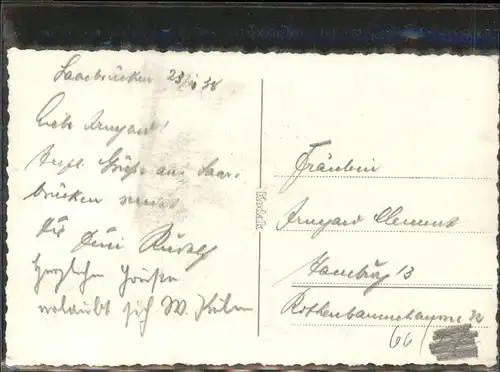 Saarbrücken 23/ 38
Liebe Irmgard!
Herzl. Grüße aus Saar-
brücken sendet
Dir Rudolf
Herzliche Grüße
erlaubt sich W.
Fräulein
Irmgard Clement
Hamburg 13
Rothenbaumchaussee
66